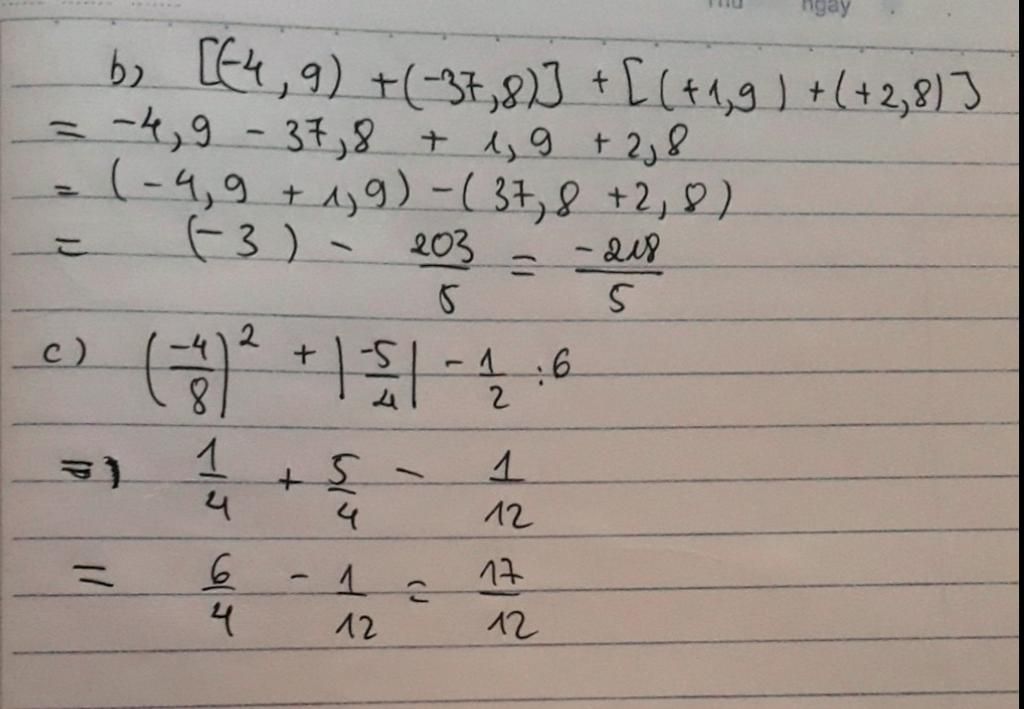 Thứ ngày
b) [(-4,9) + (-37,8)] + [(+1,9) + (+2,8)]
= -4,9 - 37,8 + 1,9 + 2,8
= (-4,9 + 1,9) - (37,8 + 2,8)
= (-3) - 203/5 = -218/5
c) (-4/8)² + |-5/4| - 1/2 : 6
=) 1/4 + 5/4 - 1/12
= 6/4 - 1/12 = 17/12